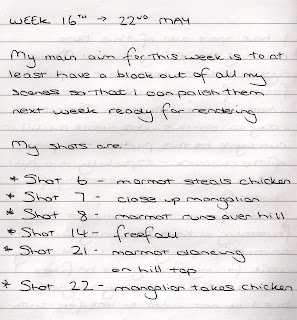 WEEK 16TH → 22ND MAY
My main aim for this week is to at
least have a block out of all my
scenes so that I can polish them
next week ready for rendering
My shots are:
* Shot 6 - marmot steals chicken
* Shot 7 - close up mongolian
* Shot 8 - marmot runs over hill
* Shot 14 - freefall
* Shot 21 - marmot dancing
on hill top
* Shot 22 - mongolian takes chicken